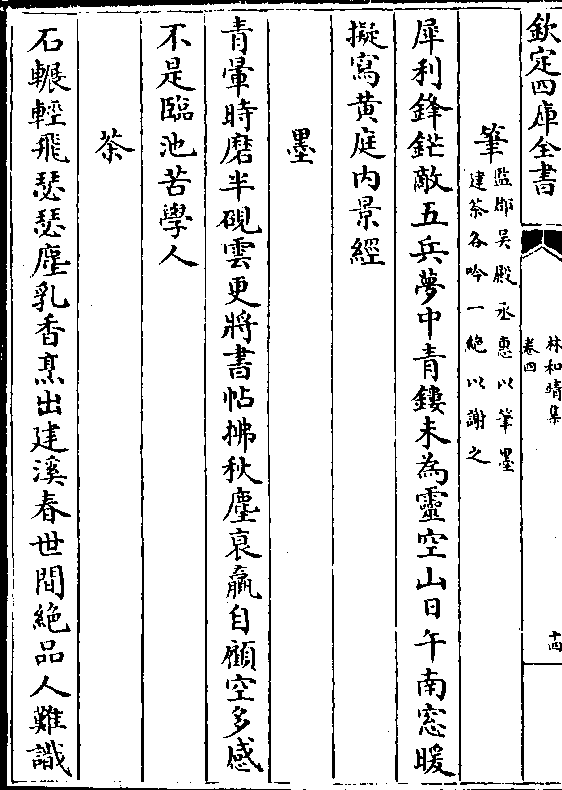 欽定四庫全書
林和靖集
卷四
十四
筆
監郡吳殿丞惠以筆墨
建茶各吟一絶以謝之
犀利鋒鋩敵五兵夢中青鏤未為靈空山日午南窓暖
擬寫黄庭内景經
墨
青暈時磨半硯雲更將書帖拂秋塵衰羸自顧空多感
不是臨池苦學人
茶
石輾輕飛瑟瑟塵乳香烹出建溪春世間絶品人難識